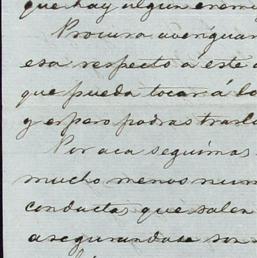 que hay algun enemi
Procura averiguar
esa respecto a este a
que pueda tocar á lo
y espero podras trasla
Por aca seguimos
mucho menos num
conductas que salen
asegurandose son